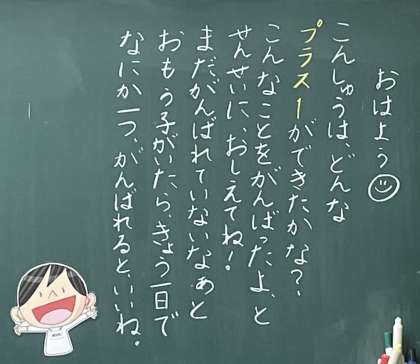 おはよう
こんしゅうは、どんな
プラス1ができたかな?
こんなことをがんばったよ、と
せんせいに、おしえてね!
まだがんばれていないなぁと
おもう子がいたら、きょう一日で
なにか一つ、がんばれると、いいね。